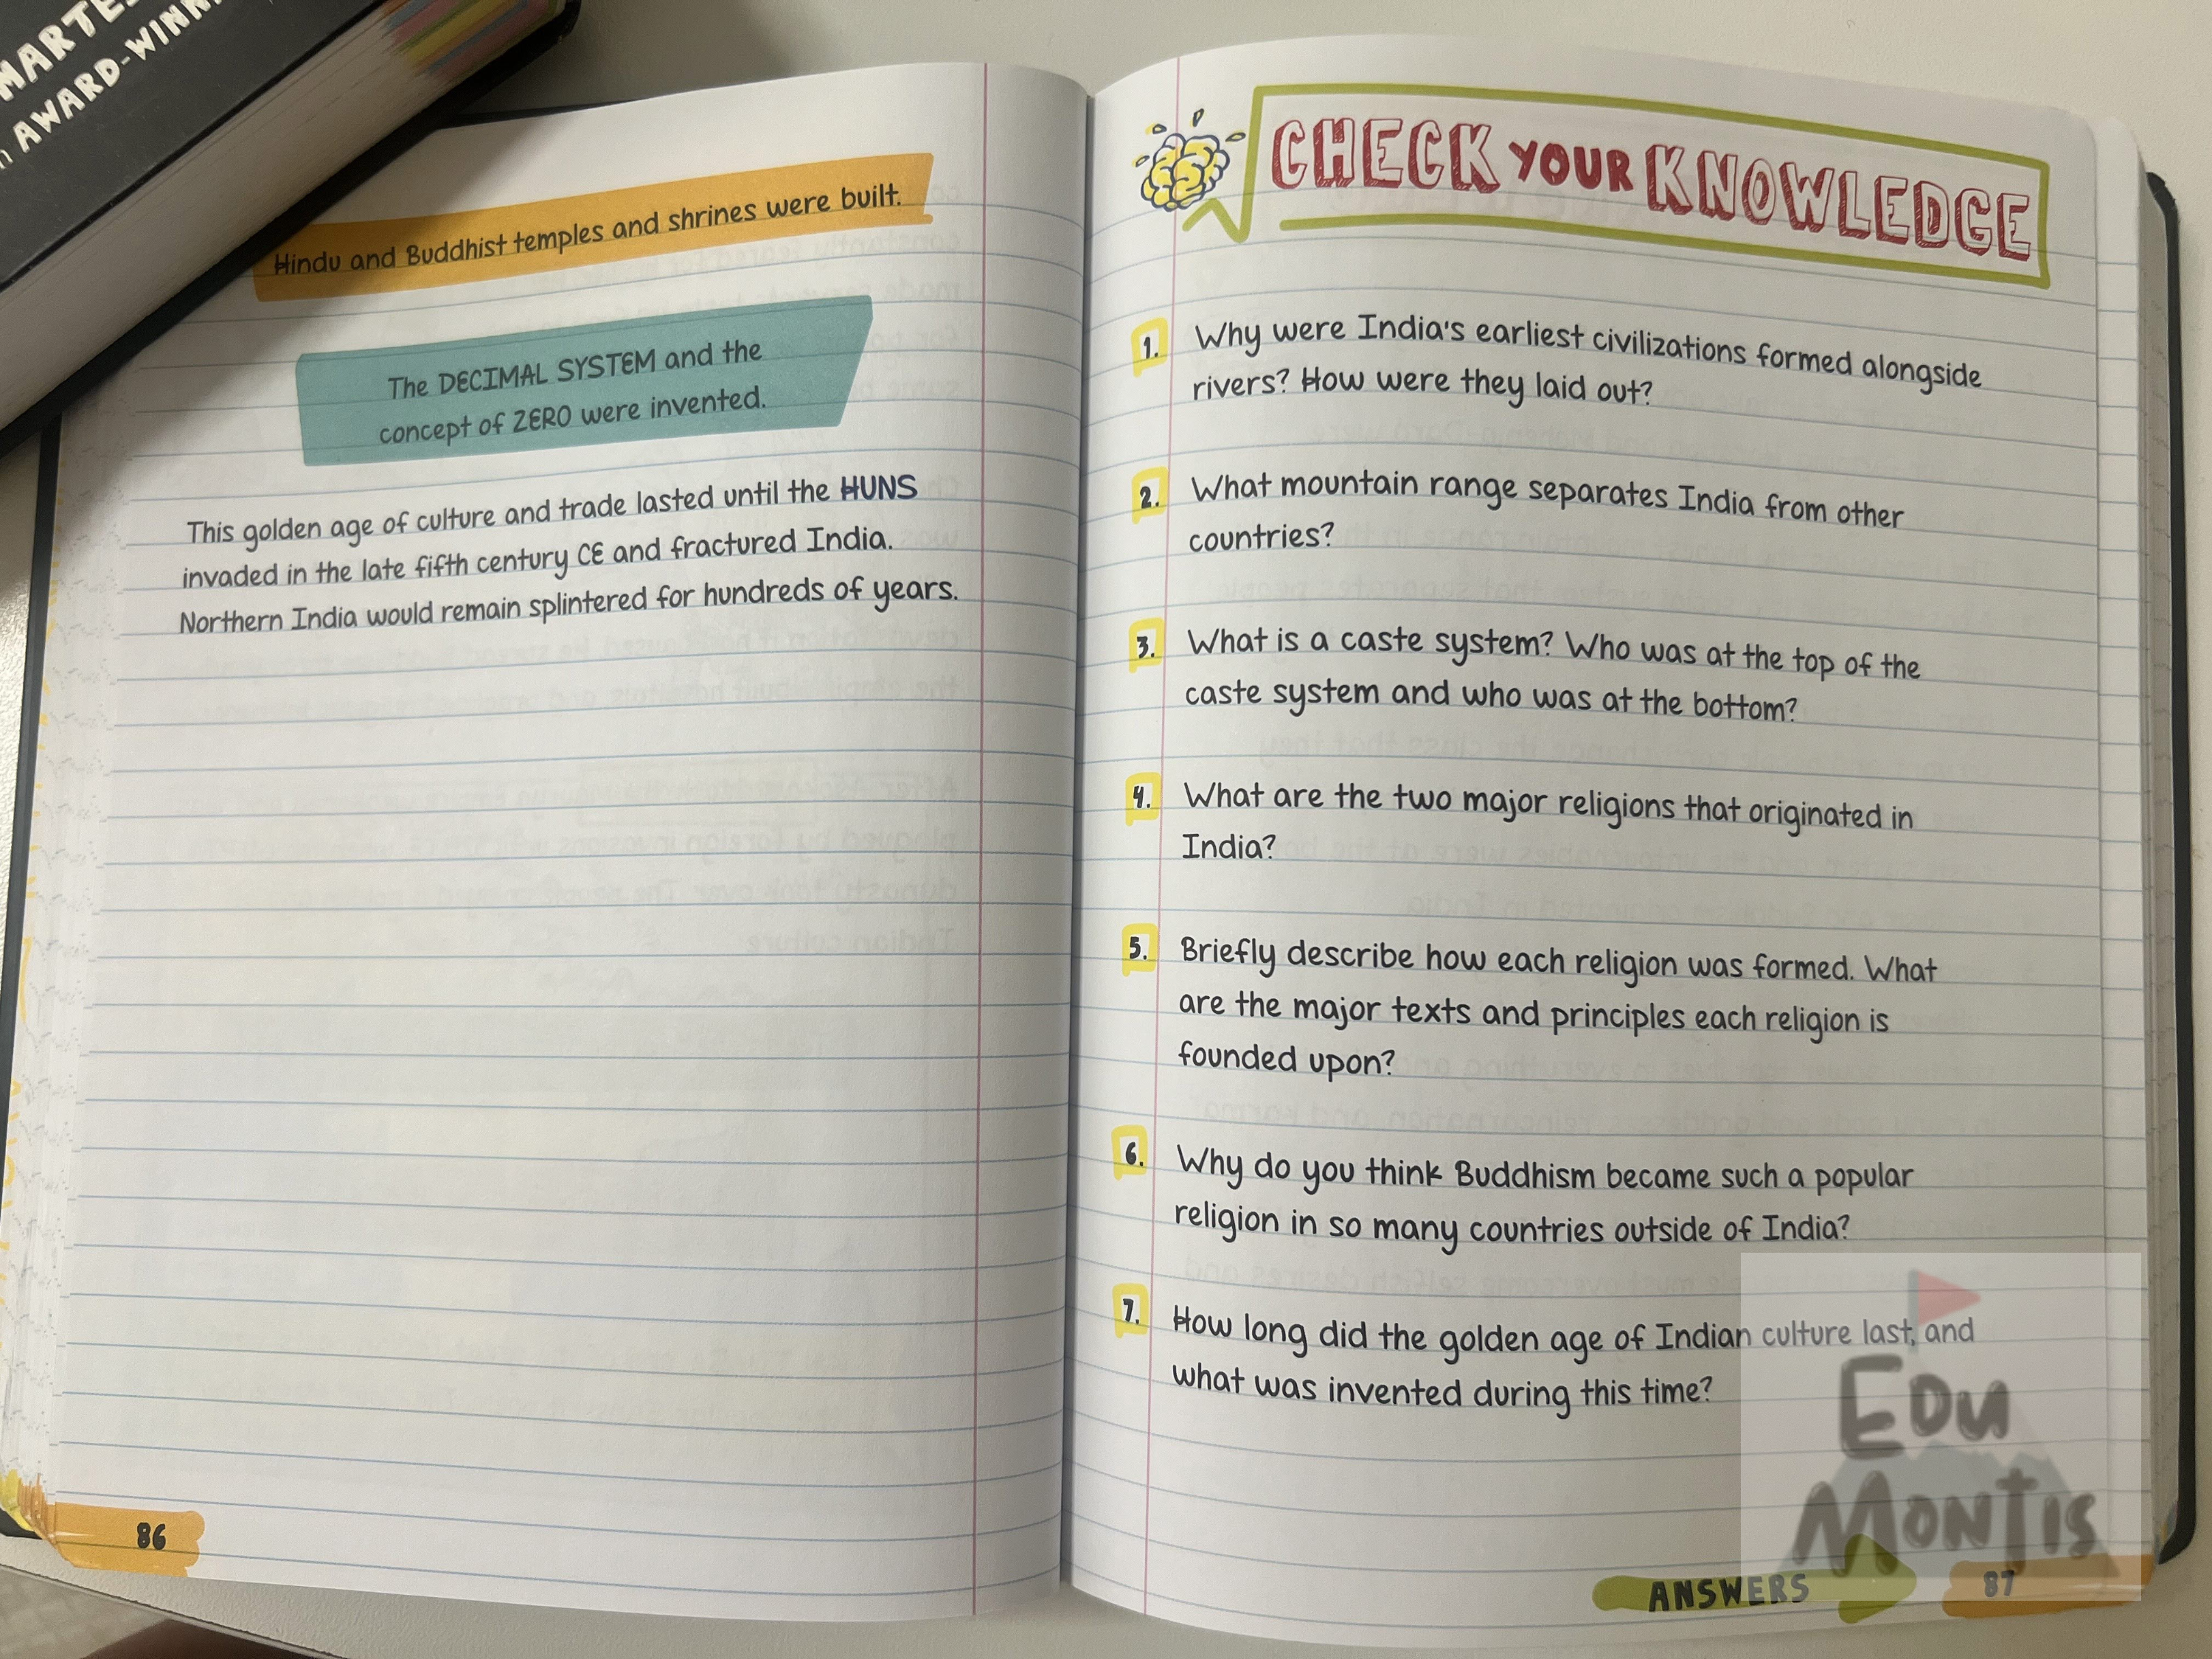 AWARD-WINN
Hindu and Buddhist temples and shrines were built.
The DECIMAL SYSTEM and the
concept of ZERO were invented.
This golden age of culture and trade lasted until the HUNS
invaded in the late fifth century CE and fractured India.
Northern India would remain splintered for hundreds of years.
86
CHECK YOUR KNOWLEDGE
1. Why were India's earliest civilizations formed alongside
rivers? How were they laid out?
2. What mountain range separates India from other
countries?
3. What is a caste system? Who was at the top of the
caste system and who was at the bottom?
4. What are the two major religions that originated in
India?
5. Briefly describe how each religion was formed. What
are the major texts and principles each religion is
founded upon?
6. Why do you think Buddhism became such a popular
religion in so many countries outside of India?
7. How long did the golden age of Indian culture last, and
what was invented during this time?
EDU
MONTIS
ANSWERS
87